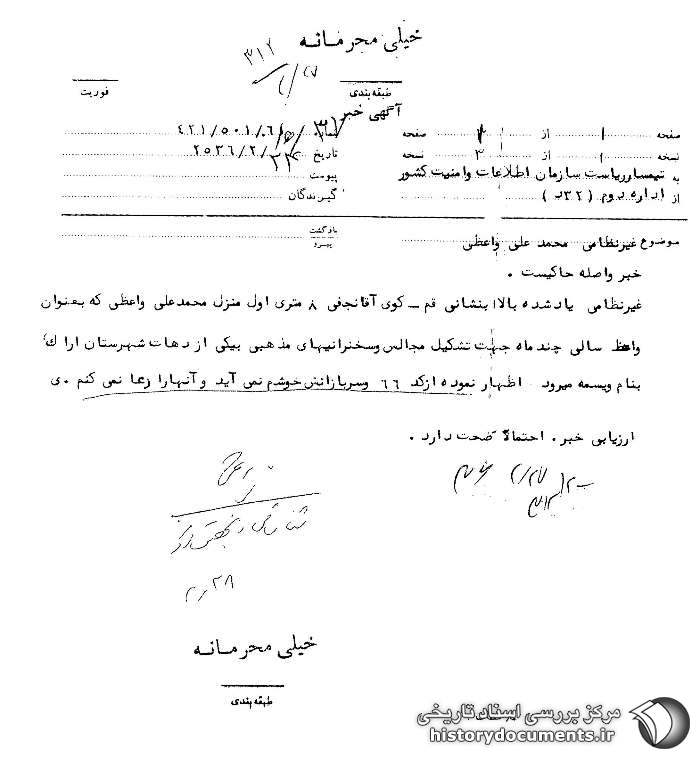 خیلی محرمانه
۳۱۲
طبقه‌بندی
فوریت
آگهی خبر
صفحه ۱ از ۱ صفحه
شماره ۴۲۱/۵۰۱/۰۶
نسخه ۱ از ۳ نسخه
تاریخ ۲۵۳۶/۲/۲۲
به تیمسار ریاست سازمان اطلاعات وامنیت کشور
پیوست
از اداره دوم (۳۲د)
گیرندگان
بازگشت
پیرو
موضوع غیرنظامی محمد علی واعظی
خبر واصله حاکیست .
غیرنظامی یادشده بالا ابنشانی قم ـ کوی آقانجفی ۸ متری اول منزل محمدعلی واعظی که بعنوان
واعظ سالی چند ماه جهت تشکیل مجالس وسخنرانیهای مذهبی بیکی از دهات شهرستان اراک
بنام ویسمه میرود اظهار نموده ازکد ۶۶ وسربازانش خوشم نمی آید و آنهارا دعا نمی کنم . ی
ارزیابی خبر . احتمالا صحت دارد .
۲/۲۸
خیلی محرمانه
طبقه‌بندی
مرکز بررسی اسناد تاریخی
historydocuments.ir